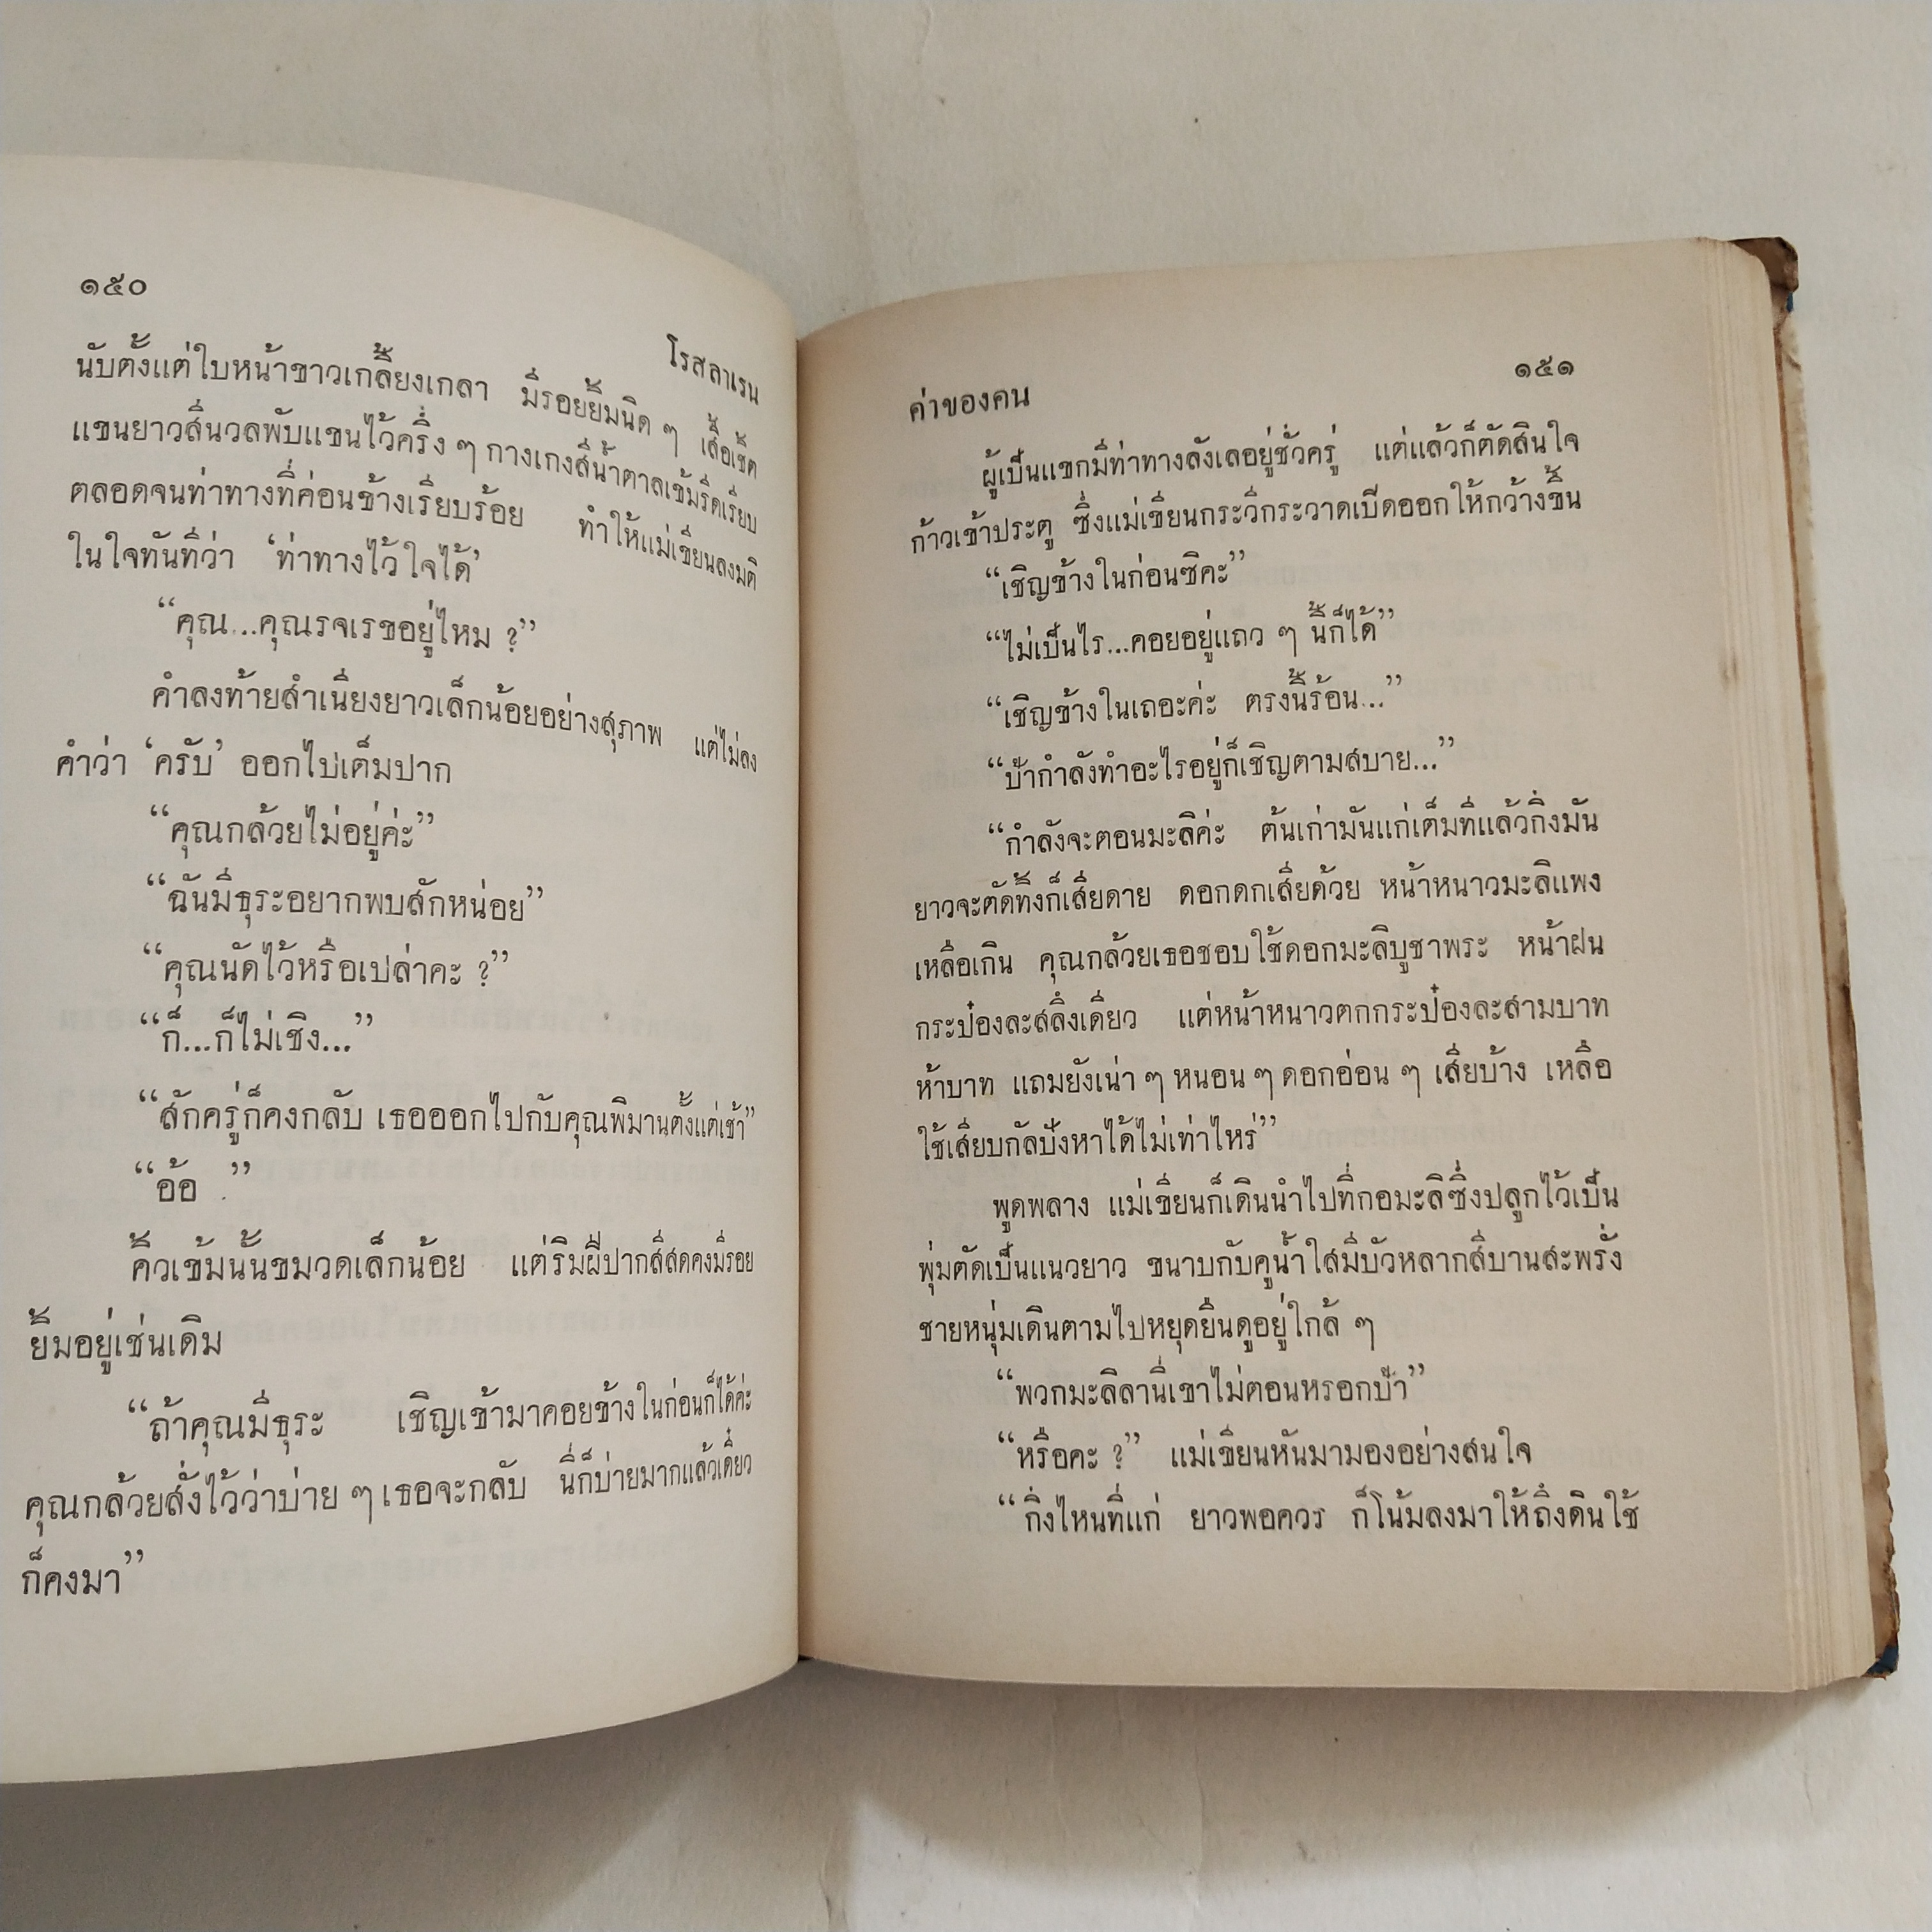 ๑๕๐
โรสลาเรน
นับตั้งแต่ใบหน้าขาวเกลี้ยงเกลา มีรอยยิ้มนิด ๆ เสื้อเชิ้ต
แขนยาวสีนวลพับแขนไว้ครึ่ง ๆ กางเกงสีน้ำตาลเข้มรีดเรียบ
ตลอดจนท่าทางที่ค่อนข้างเรียบร้อย ทำให้แม่เขียนลงมติ
ในใจทันทีว่า ‘ท่าทางไว้ใจได้’
“คุณ...คุณรจเรขอยู่ไหม ?”
คำลงท้ายสำเนียงยาวเล็กน้อยอย่างสุภาพ แต่ไม่ลง
คำว่า ‘ครับ’ ออกไปเต็มปาก
“คุณกล้วยไม่อยู่ค่ะ”
“ฉันมีธุระอยากพบสักหน่อย”
“คุณนัดไว้หรือเปล่าคะ ?”
“ก็...ก็ไม่เชิง...”
“สักครู่ก็คงกลับ เธอออกไปกับคุณพิมานตั้งแต่เช้า”
“อ้อ .”
คิ้วเข้มนั้นขมวดเล็กน้อย แต่ริมฝีปากสีสดคงมีรอย
ยิ้มอยู่เช่นเดิม
“ถ้าคุณมีธุระ เชิญเข้ามาคอยข้างในก่อนก็ได้ค่ะ
คุณกล้วยสั่งไว้ว่าบ่าย ๆ เธอจะกลับ นี่ก็บ่ายมากแล้วเดี๋ยว
ก็คงมา”
๑๕๑
ค่าของคน
ผู้เป็นแขกมีท่าทางลังเลอยู่ชั่วครู่ แต่แล้วก็ตัดสินใจ
ก้าวเข้าประตู ซึ่งแม่เขียนกระวีกระวาดเปิดออกให้กว้างขึ้น
“เชิญข้างในก่อนซิคะ”
“ไม่เป็นไร...คอยอยู่แถว ๆ นี้ก็ได้”
“เชิญข้างในเถอะค่ะ ตรงนี้ร้อน...”
“ป้ากำลังทำอะไรอยู่ก็เชิญตามสบาย...”
“กำลังจะตอนมะลิค่ะ ต้นเก่ามันแก่เต็มทีแล้วกิ่งมัน
ยาวจะตัดทิ้งก็เสียดาย ดอกดกเสียด้วย หน้าหนาวมะลิแพง
เหลือเกิน คุณกล้วยเธอชอบใช้ดอกมะลิบูชาพระ หน้าฝน
กระป๋องละสลึงเดียว แต่หน้าหนาวตกกระป๋องละสามบาท
ห้าบาท แถมยังเน่า ๆ หนอน ๆ ดอกอ่อน ๆ เสียบ้าง เหลือ
ใช้เสียบกัลปังหาได้ไม่เท่าไหร่”
พูดพลาง แม่เขียนก็เดินนำไปที่กอมะลิซึ่งปลูกไว้เป็น
พุ่มตัดเป็นแนวยาว ขนาบกับคูน้ำใสมีบัวหลากสีบานสะพรั่ง
ชายหนุ่มเดินตามไปหยุดยืนดูอยู่ใกล้ ๆ
“พวกมะลิลานี่เขาไม่ตอนหรอกป้า”
“หรือคะ ?” แม่เขียนหันมามองอย่างสนใจ
“กิ่งไหนที่แก่ ยาวพอควร ก็โน้มลงมาให้ถึงดินใช้